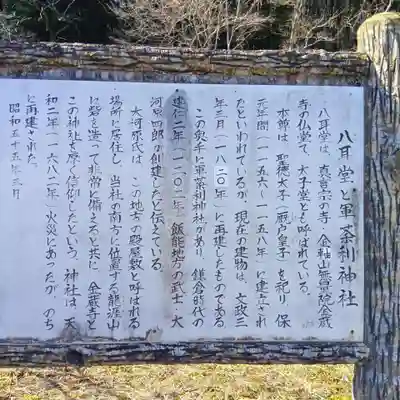 八耳堂と軍荼利神社
八耳堂は、真言宗の寺、金軸山無量院金蔵
寺の仏堂で、太子堂とも呼ばれている。
本尊は、聖徳太子(厩戸皇子)を祀り、保
元年間(一一五六〜一一五八年)に建立され
たといわれているが、現在の建物は、文政三
年三月(一八二〇年)に再建したものである。
この奥手に軍荼利神社があり、鎌倉時代の
建仁二年(一二〇二)年、飯能地方の武士・大
河原四郎が創建したと伝えている。
大河原氏は、この地方の殿屋敷と呼ばれる
場所に居住し、当社の南方に位置する龍涯山
に砦を造って非常に備えると共に、金蔵寺と
この神社を厚く信仰したという。神社は、天
和二年(一六八二年)火災にあったが、のち
に再建された。
昭和五十五年三月